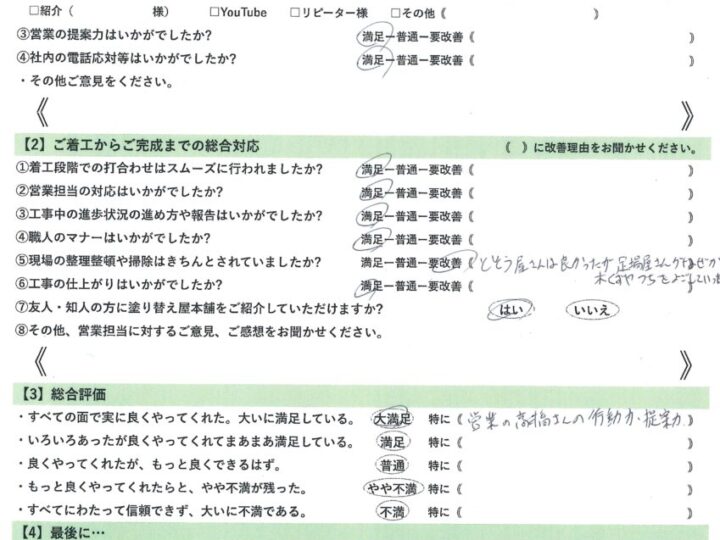 □紹介（　　　　　　様）　□YouTube　□リピーター様　□その他《　　　　》
③営業の提案力はいかがでしたか?　満足ー普通ー要改善《　　　　》
④社内の電話応対等はいかがでしたか?　満足ー普通ー要改善《　　　　》
・その他ご意見をください。
《　　　　》
【2】ご着工からご完成までの総合対応　《　》に改善理由をお聞かせください。
①着工段階での打合わせはスムーズに行われましたか?　満足ー普通ー要改善《　　　　》
②営業担当の対応はいかがでしたか?　満足ー普通ー要改善《　　　　》
③工事中の進歩状況の進め方や報告はいかがでしたか?　満足ー普通ー要改善《　　　　》
④職人のマナーはいかがでしたか?　満足ー普通ー要改善《　　　　》
⑤現場の整理整頓や掃除はきちんとされていましたか?　満足ー普通ー要改善《とそう屋さんは良かったが 足場屋さんが
木くずやつちを
⑥工事の仕上がりはいかがでしたか?　満足ー普通ー要改善《　　　　》
⑦友人・知人の方に塗り替え屋本舗をご紹介していただけますか?　はい　いいえ
⑧その他、営業担当に対するご意見、ご感想をお聞かせください。
《　　　　》
【3】総合評価
・すべての面で実に良くやってくれた。大いに満足している。　大満足　特に《営業の高橋さんの行動力・提案力》
・いろいろあったが良くやってくれてまあまあ満足している。　満足　特に《　　　　》
・良くやってくれたが、もっと良くできるはず。　普通　特に《　　　　》
・もっと良くやってくれたらと、やや不満が残った。　やや不満　特に《　　　　》
・すべてにわたって信頼できず、大いに不満である。　不満　特に《　　　　》
【4】最後に…